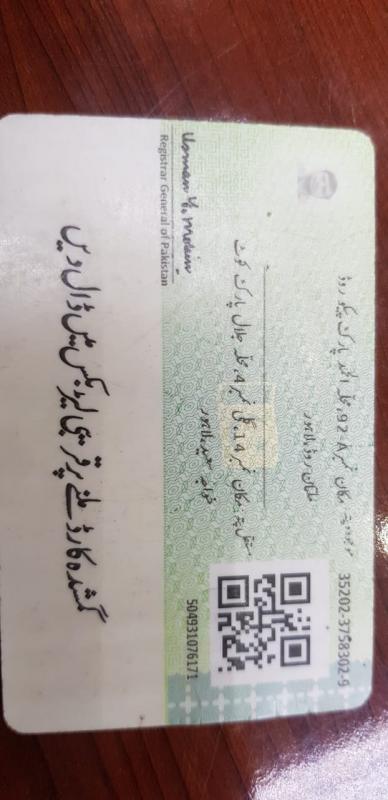 35202-3758302-9
موجودہ پتہ: مکان نمبر 92-A، محلہ احمد پارک پیکو روڈ
ملتان روڈ، لاہور
مستقل پتہ: مکان نمبر 14، گلی نمبر 4، محلہ جلال پارک کوٹ
خواجہ سعید، لاہور
504931076171
Registrar General of Pakistan
گمشدہ کارڈ ملنے پر قریبی لیٹر بکس میں ڈال دیں